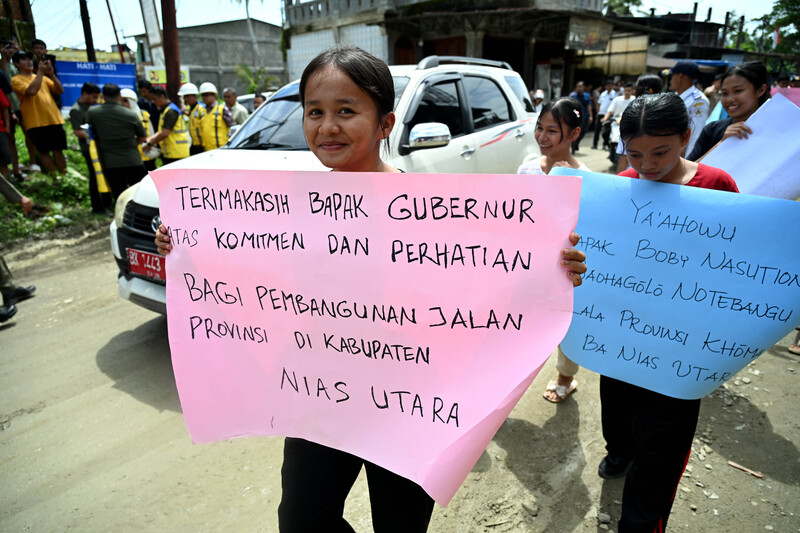 HATI-HATI
BK 1443
TERIMAKASIH BAPAK GUBERNUR
ATAS KOMITMEN DAN PERHATIAN
BAGI PEMBANGUNAN JALAN
PROVINSI DI KABUPATEN
NIAS UTARA
YA'AHOWU
BOBY NASUTION
NOTEBANGU
PROVINSI
BA NIAS UTARA